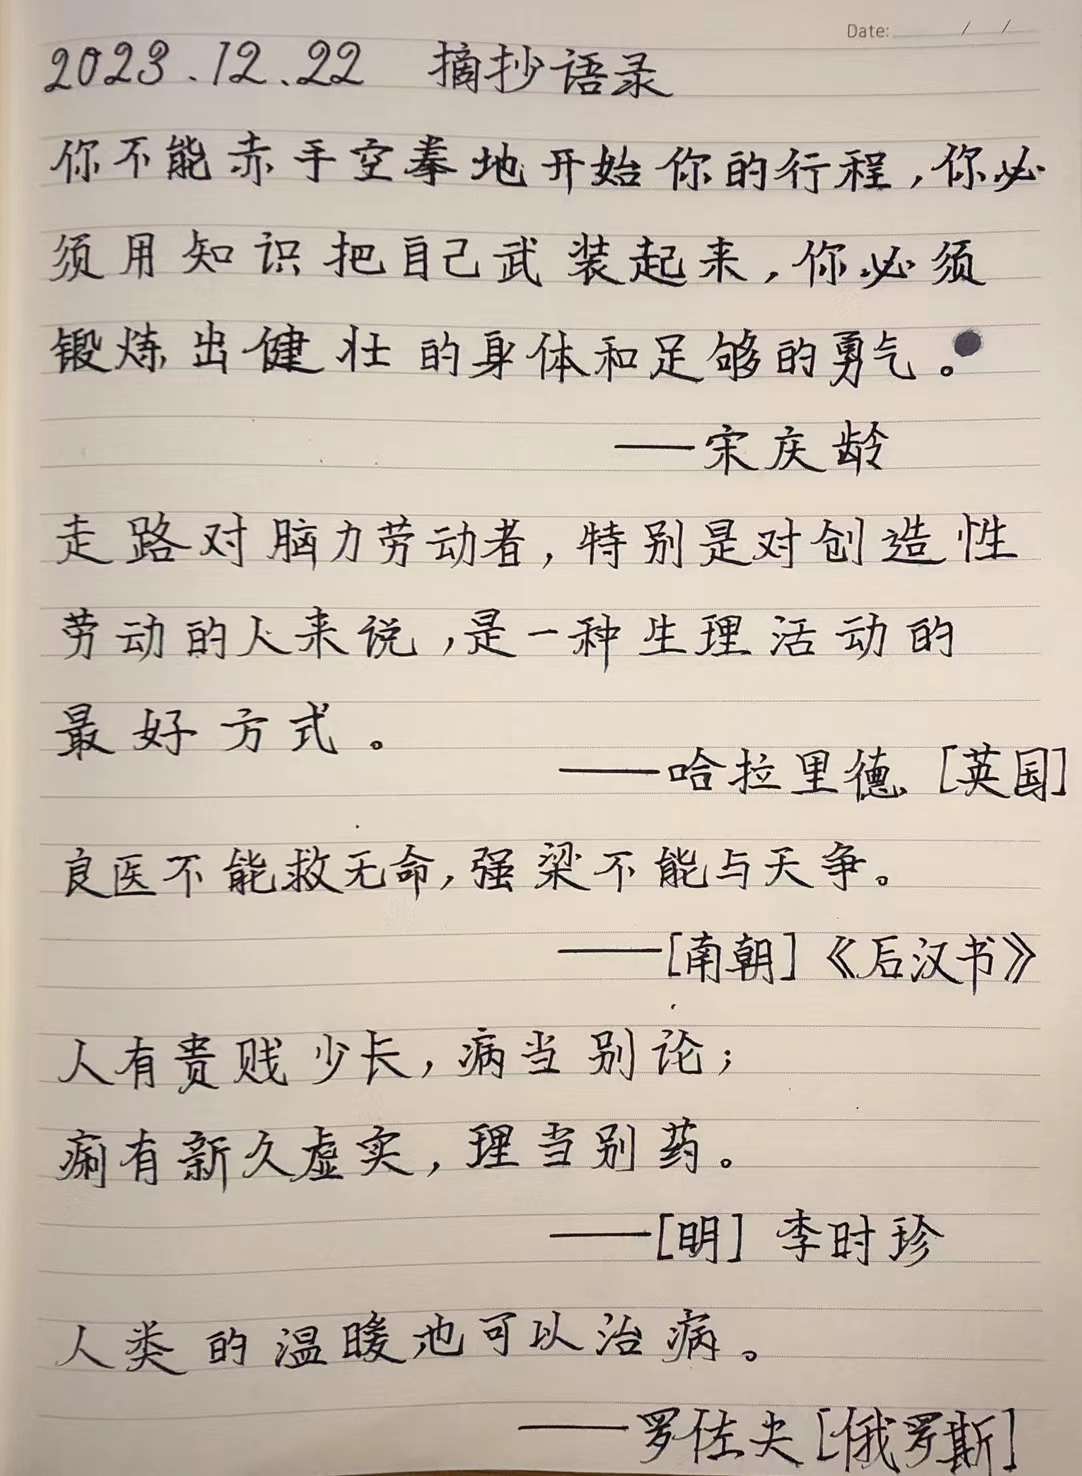 Date: / /
2023.12.22 摘抄语录
你不能赤手空拳地开始你的行程,你必
须用知识把自己武装起来,你必须
锻炼出健壮的身体和足够的勇气。
——宋庆龄
走路对脑力劳动者,特别是对创造性
劳动的人来说,是一种生理活动的
最好方式。
——哈拉里德 [英国]
良医不能救无命,强梁不能与天争。
——[南朝]《后汉书》
人有贵贱少长,病当别论;
病有新久虚实,理当别药。
——[明] 李时珍
人类的温暖也可以治病。
——罗佐夫[俄罗斯]